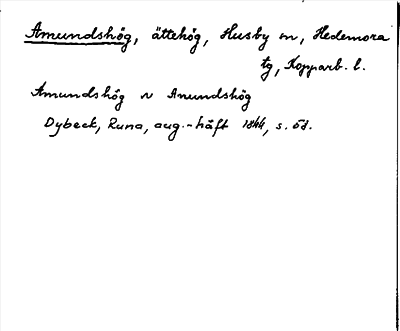 Amundshög, ättehög, Husby sn, Hedemora
tg, Kopparb. l.
Amundshög ~ Anundshög
Dybeck, Runa, aug.-häft 1844, s.